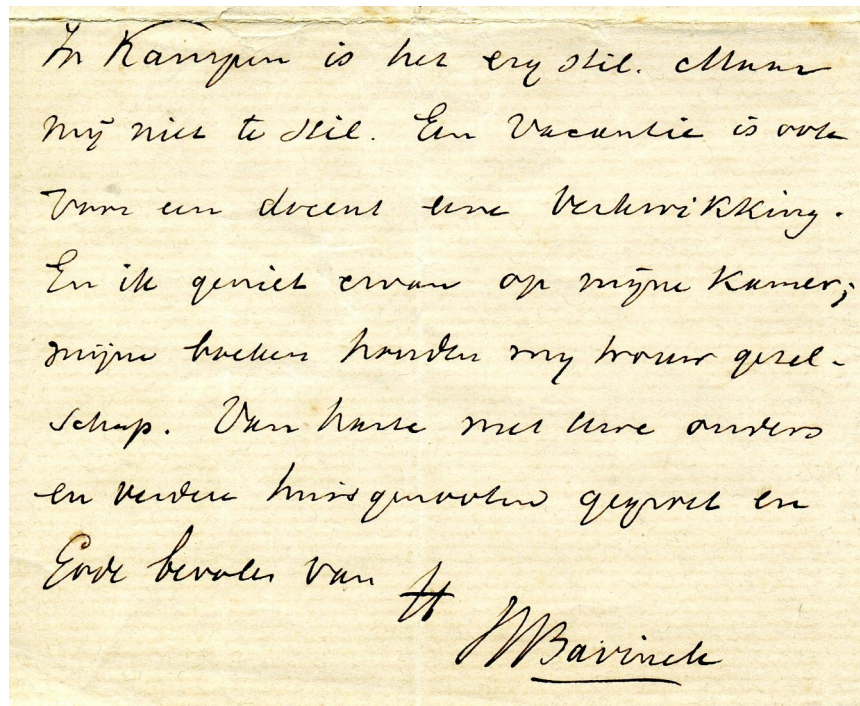 In Kampen is het erg stil. Maar
mij niet te stil. Een vacantie is ook
voor een docent eene verkwikking.
En ik geniet ervan op mijne kamer;
mijne boeken houden mij trouw gezel-
schap. Van harte met Uwe ouders
en verdere huisgenooten gegroet en
Gode bevolen van
tt
HBavinck